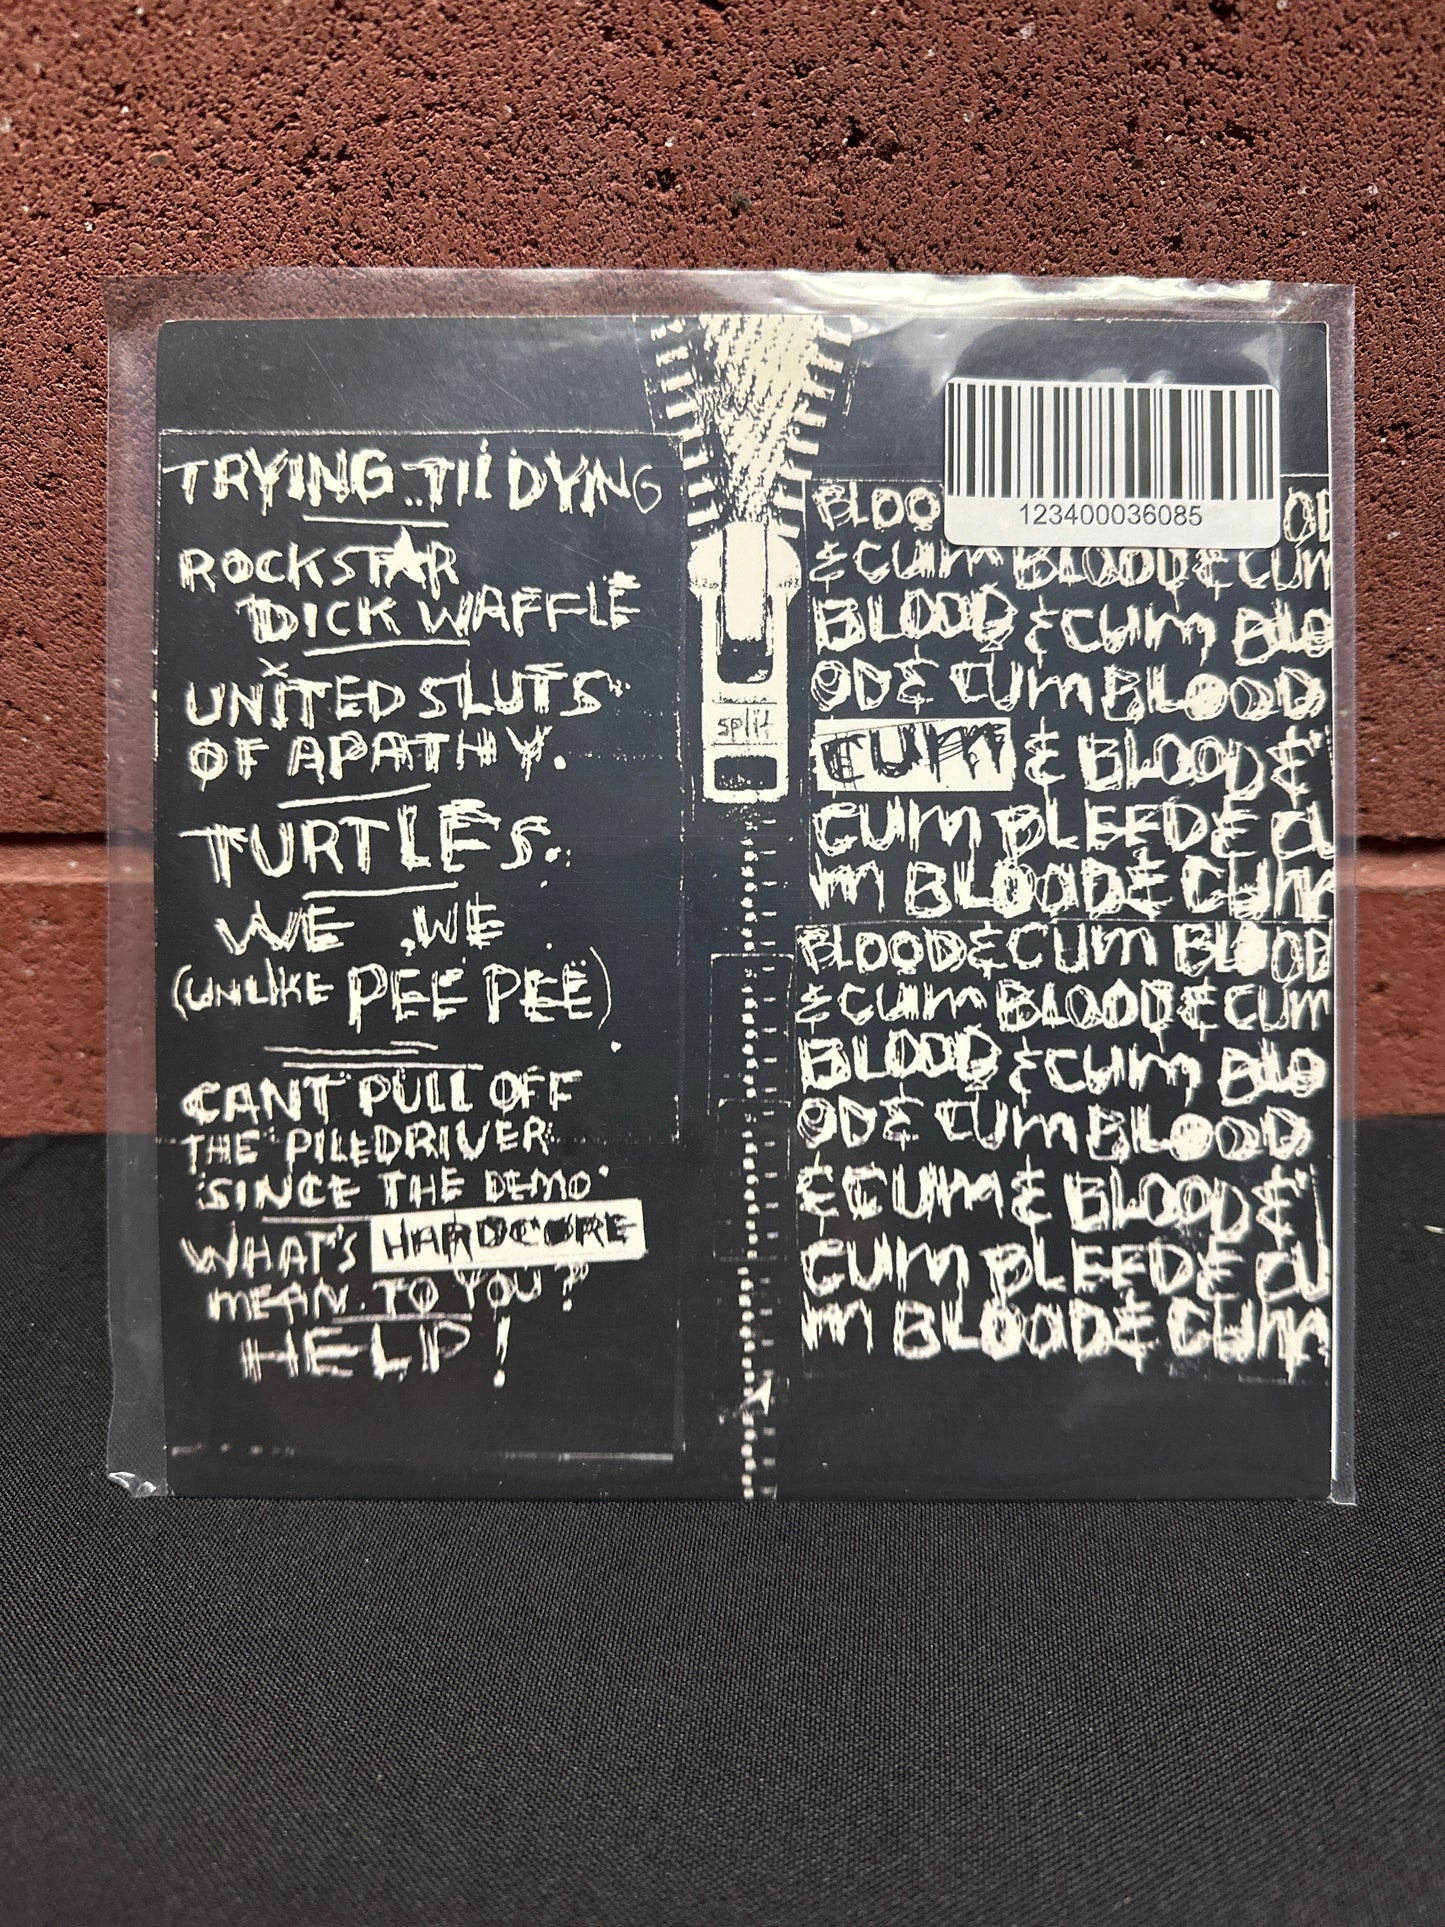 TRYING..TIL DYING
ROCKSTAR
DICK WAFFLE
UNITED SLUTS
OF APATHY.
TURTLES.
WE WE
(UNLIKE PEE PEE)
CANT PULL OFF
THE PILEDRIVER
SINCE THE DEMO
WHAT'S HARDCORE
MEAN TO YOU?
HELP!
split
123400036085
BLOO OD
& CUM BLOOD & CUM
BLOOD & CUM BLO
OD & CUM BLOOD
CUM & BLOOD &
CUM BLEED & CU
M BLOOD & CUM
BLOOD & CUM BLOOD
& CUM BLOOD & CUM
BLOOD & CUM BLO
OD & CUM BLOOD
& CUM & BLOOD &
CUM BLEED & CU
M BLOOD & CUM